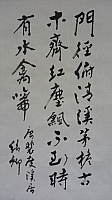 門徑俯清溪茅檐古
木齊紅塵飄不到時
有水禽啼
唐裴度溪居